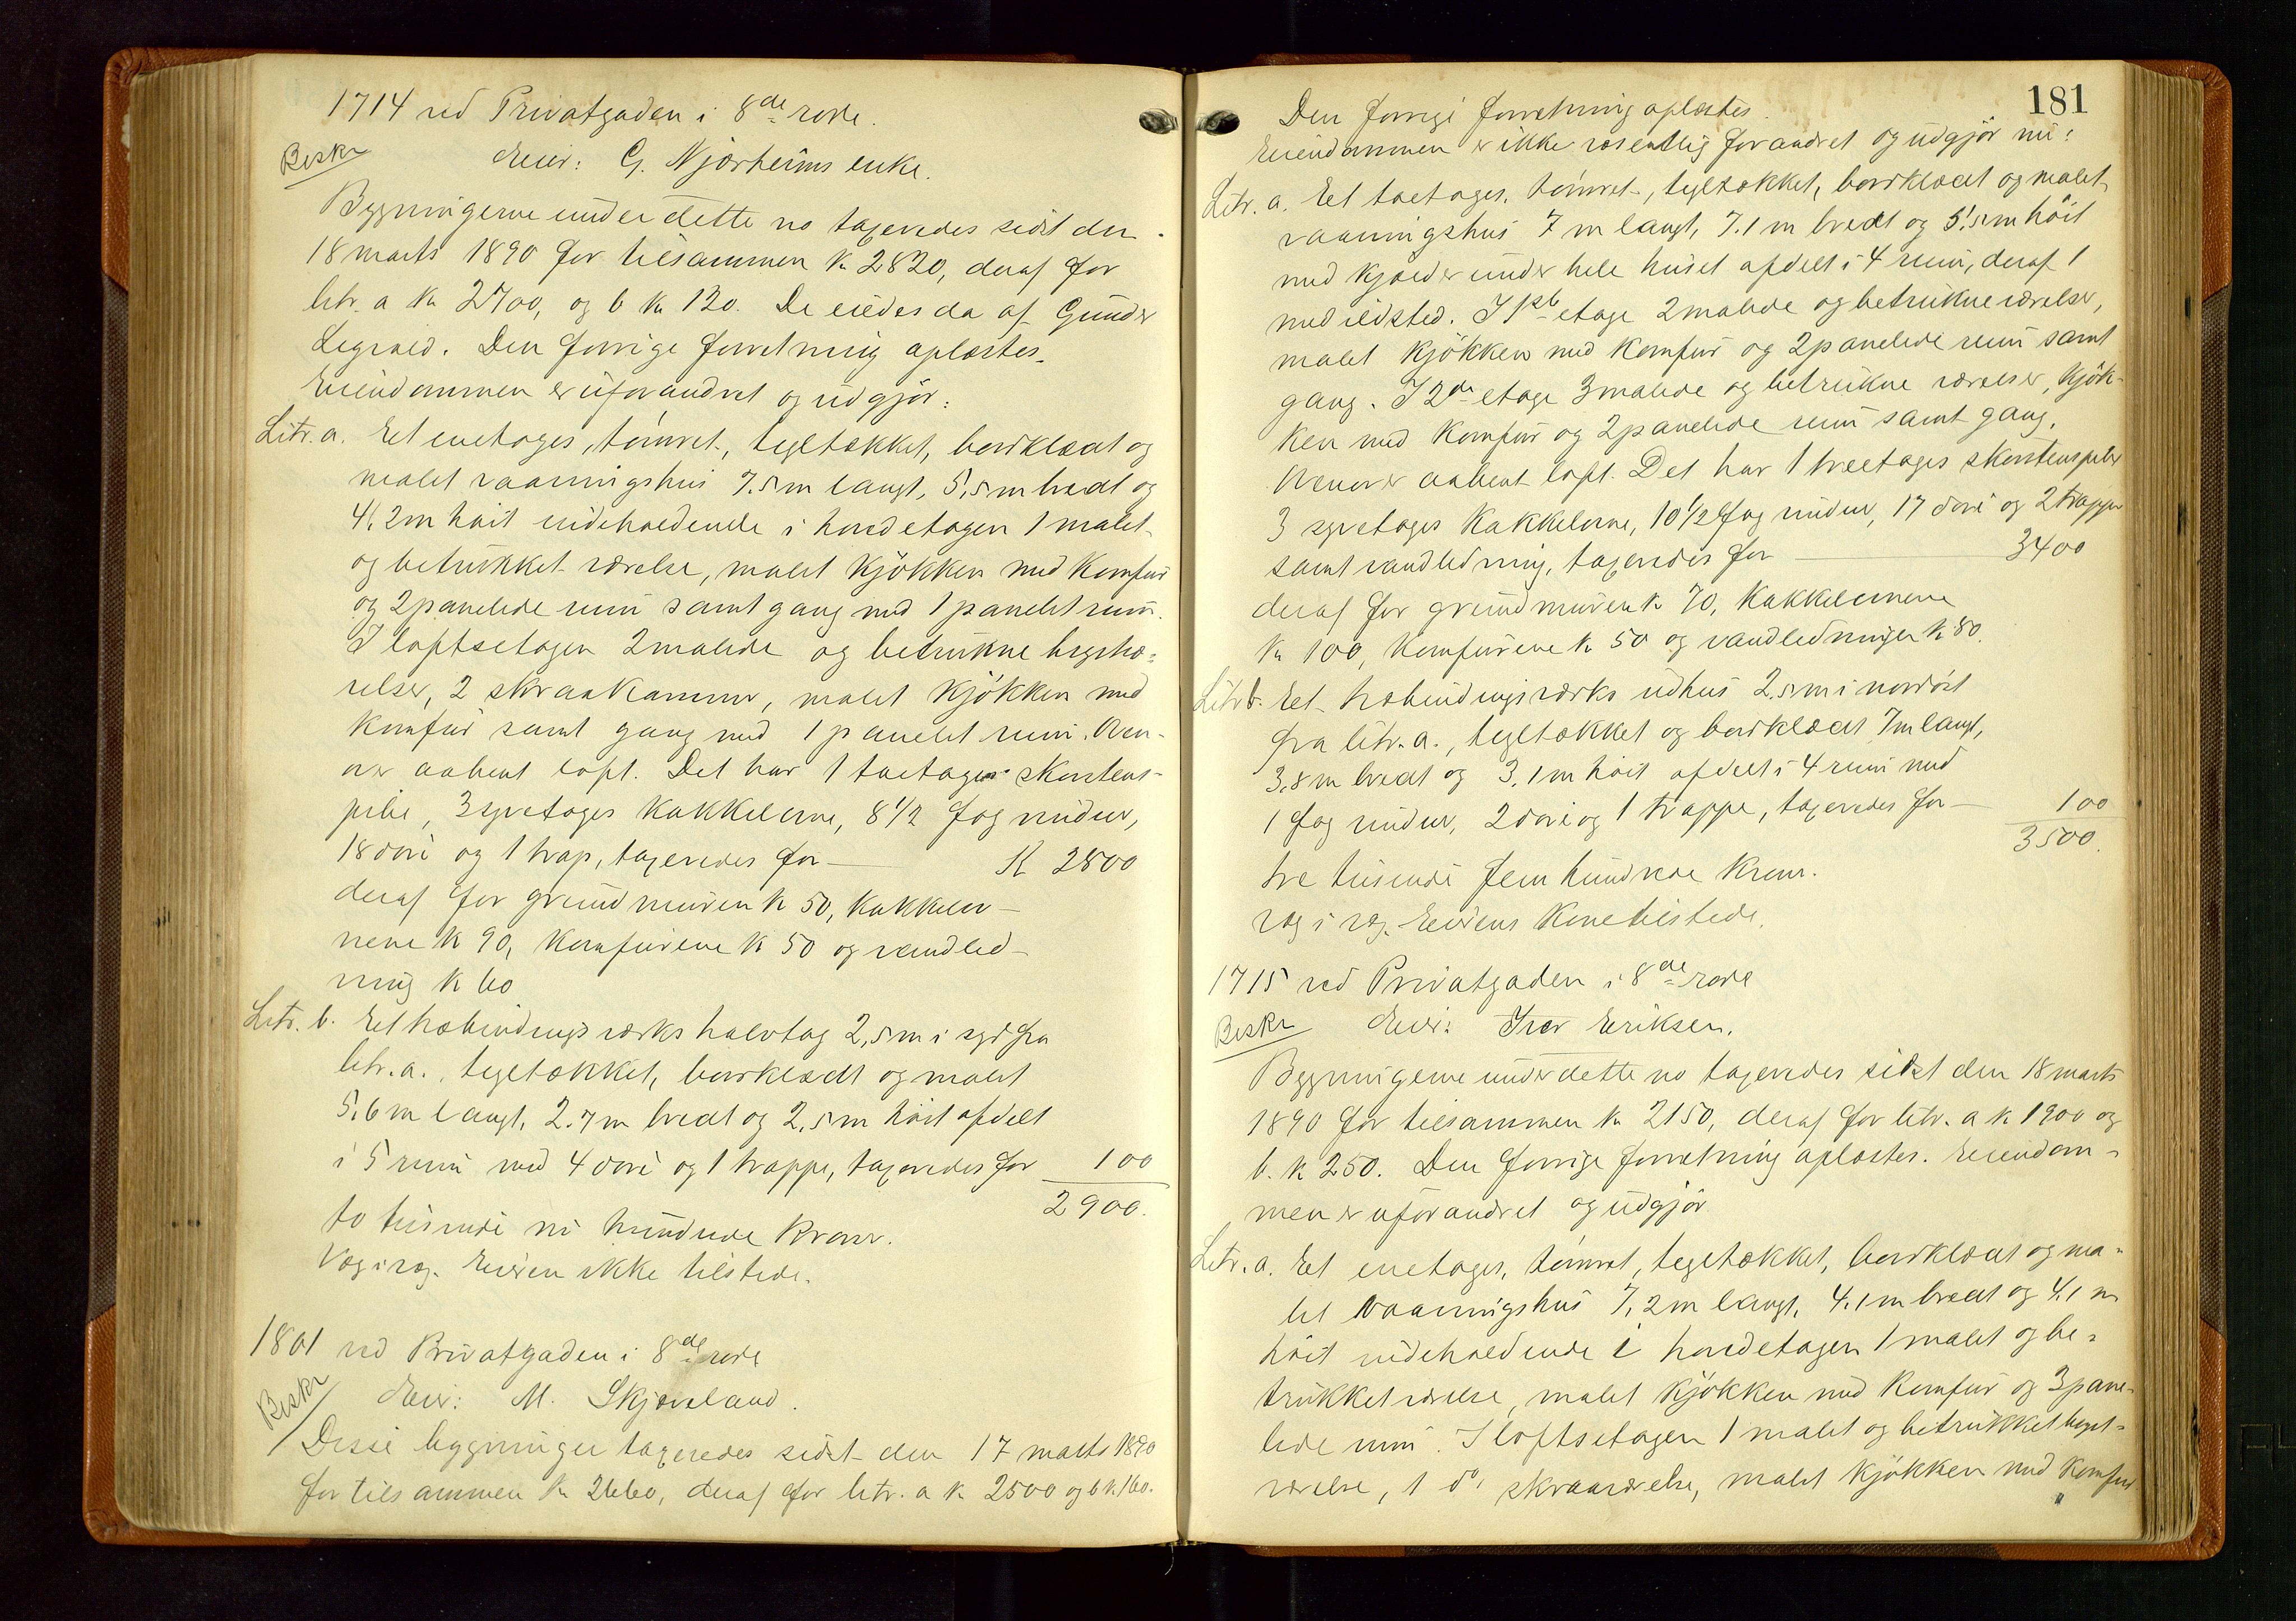 1714 ved Privatgaden i 8de rode.
Beskr Eier: G. Njærheims enke.
Bygningerne under dette no taxeredes sidst den
18 marts 1890 for tilsammen Kr 2820, deraf for
litr. a Kr 2700, og b Kr 120. De eiedes da af Gunder
Legreid. Den forrige forretning oplæstes.
Eiendommen er uforandret og udgjör:
Litr. a. Et enetages, tömret, tegltækket, bordklædt og
malet vaaningshus 7.5 m langt, 5,5 m bredt og
4,2 m höit indeholdende i hovedetagen 1 malet
og betrukket værelse, malet kjökken med komfur
og 2 panelede rum samt gang med 1 panelet rum.
I loftsetagen 2 malede og betrukne hegstvæ-
relser, 2 skraakammer, malet kjökken med
komfur samt gang med 1 panelet rum. Oven-
over aabent loft. Det har 1 toetages skorstens-
pibe, 3 syvetages kakkelovne, 8 1/2 fag vinduer,
18 döre og 1 trap, taxeredes for — K 2800
deraf for grundmuren k 50, kakkelov-
nene K 90, komfurene K 50 og vandled-
ning K 60
Litr. b. Et træbindingsværks halvtag 2,5 m i syd fra
litr. a., tegltækket, bordklædt og malet
5,6 m langt, 2.7 m bredt og 2,5 m höit afdelt
i 5 rum med 4 döre og 1 trappe, taxeredes for 100
2900.
to tusinde ni hundrede Kroner.
Væg i væg. Eieren ikke tilstede.
1801 ved Privatgaden i 8de rode
Beskr Eier: M. Skjæveland.
Disse bygninger taxeredes sidst den 17 marts 1890
for tilsammen Kr 2660, deraf for litr. a k 2500 og b k 160.
181
Den forrige forretning oplæstes.
Eiendommen er ikke væsentlig forandret og udgjör nu:
Litr. a. Et toetages, tömret, tegltækket, bordklædt og malet
vaaningshus 7 m langt, 7.1 m bredt og 5,5 m höit
med kjælder under hele huset afdelt i 4 rum, deraf 1
med ildsted. I 1ste etage 2 malede og betrukne værelser,
malet kjökken med komfur og 2 panelede rum samt
gang. I 2de etage 3 malede og betrukne værelser, kjök-
ken med komfur og 2 panelede rum samt gang.
Ovenover aabent loft. Det har 1 treetages skorstenspibe
3 syvetages kakkelovne, 10 1/2 fag vinduer, 17 döre og 2 trapper
samt vandledning, taxeredes for — 3400
deraf for grundmuren k 70, kakkelovnene
Kr 100, komfurene k 50 og vandledningen k 80.
Litr b. Et træbindingsværks udhus 2.5 m i nordöst
fra litr. a., tegltækket og bordklædt 7 m langt,
3,8 m bredt og 3,1 m höit afdelt i 4 rum med
1 fag vinduer, 2 döre og 1 trappe, taxeredes for — 100
3500.
tre tusinde fem hundrede Kroner.
væg i væg. Eierens kone tilstede.
1715 ved Privatgaden i 8de rode
Beskr Eier: Iver Eriksen.
Bygningerne under dette no taxeredes sidst den 18 marts
1890 for tilsammen Kr 2150, deraf for litr. a k 1900 og
b. k 250. Den forrige forretning oplæstes. Eiendom-
men er uforandret og udgjör
Litr. a. Et enetages, tömret, tegltækket, bordklædt og ma-
let vaaningshus 7,2 m langt, 4,1 m bredt og 4,1 m
höit indeholdende i hovedetagen 1 malet og be-
trukket værelse, malet kjökken med komfur og 3 pane-
lede rum. I loftsetagen 1 malet og betrukket hegst-
værelse, 1 do skraaværelse, malet kjökken med komfur